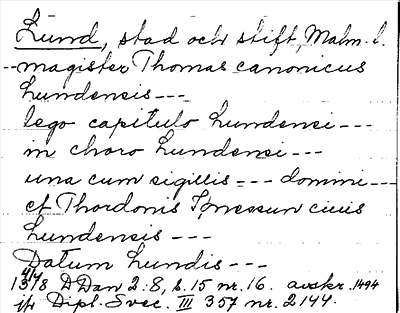 Lund, stad och stift, Malm. l.
--magister Thomas canonicus
Lundensis---
lego capitulo Lundensi---
in choro Lundensi---
una cum sigillis --- domini---
et Thordonis Ipressun civis
Lundensis---
Datum Lundis---
4/4
1318 DDan 2:8, s. 15 nr. 16. avskr. 1494
jfr Dipl. Svec. III 357 nr. 2144.